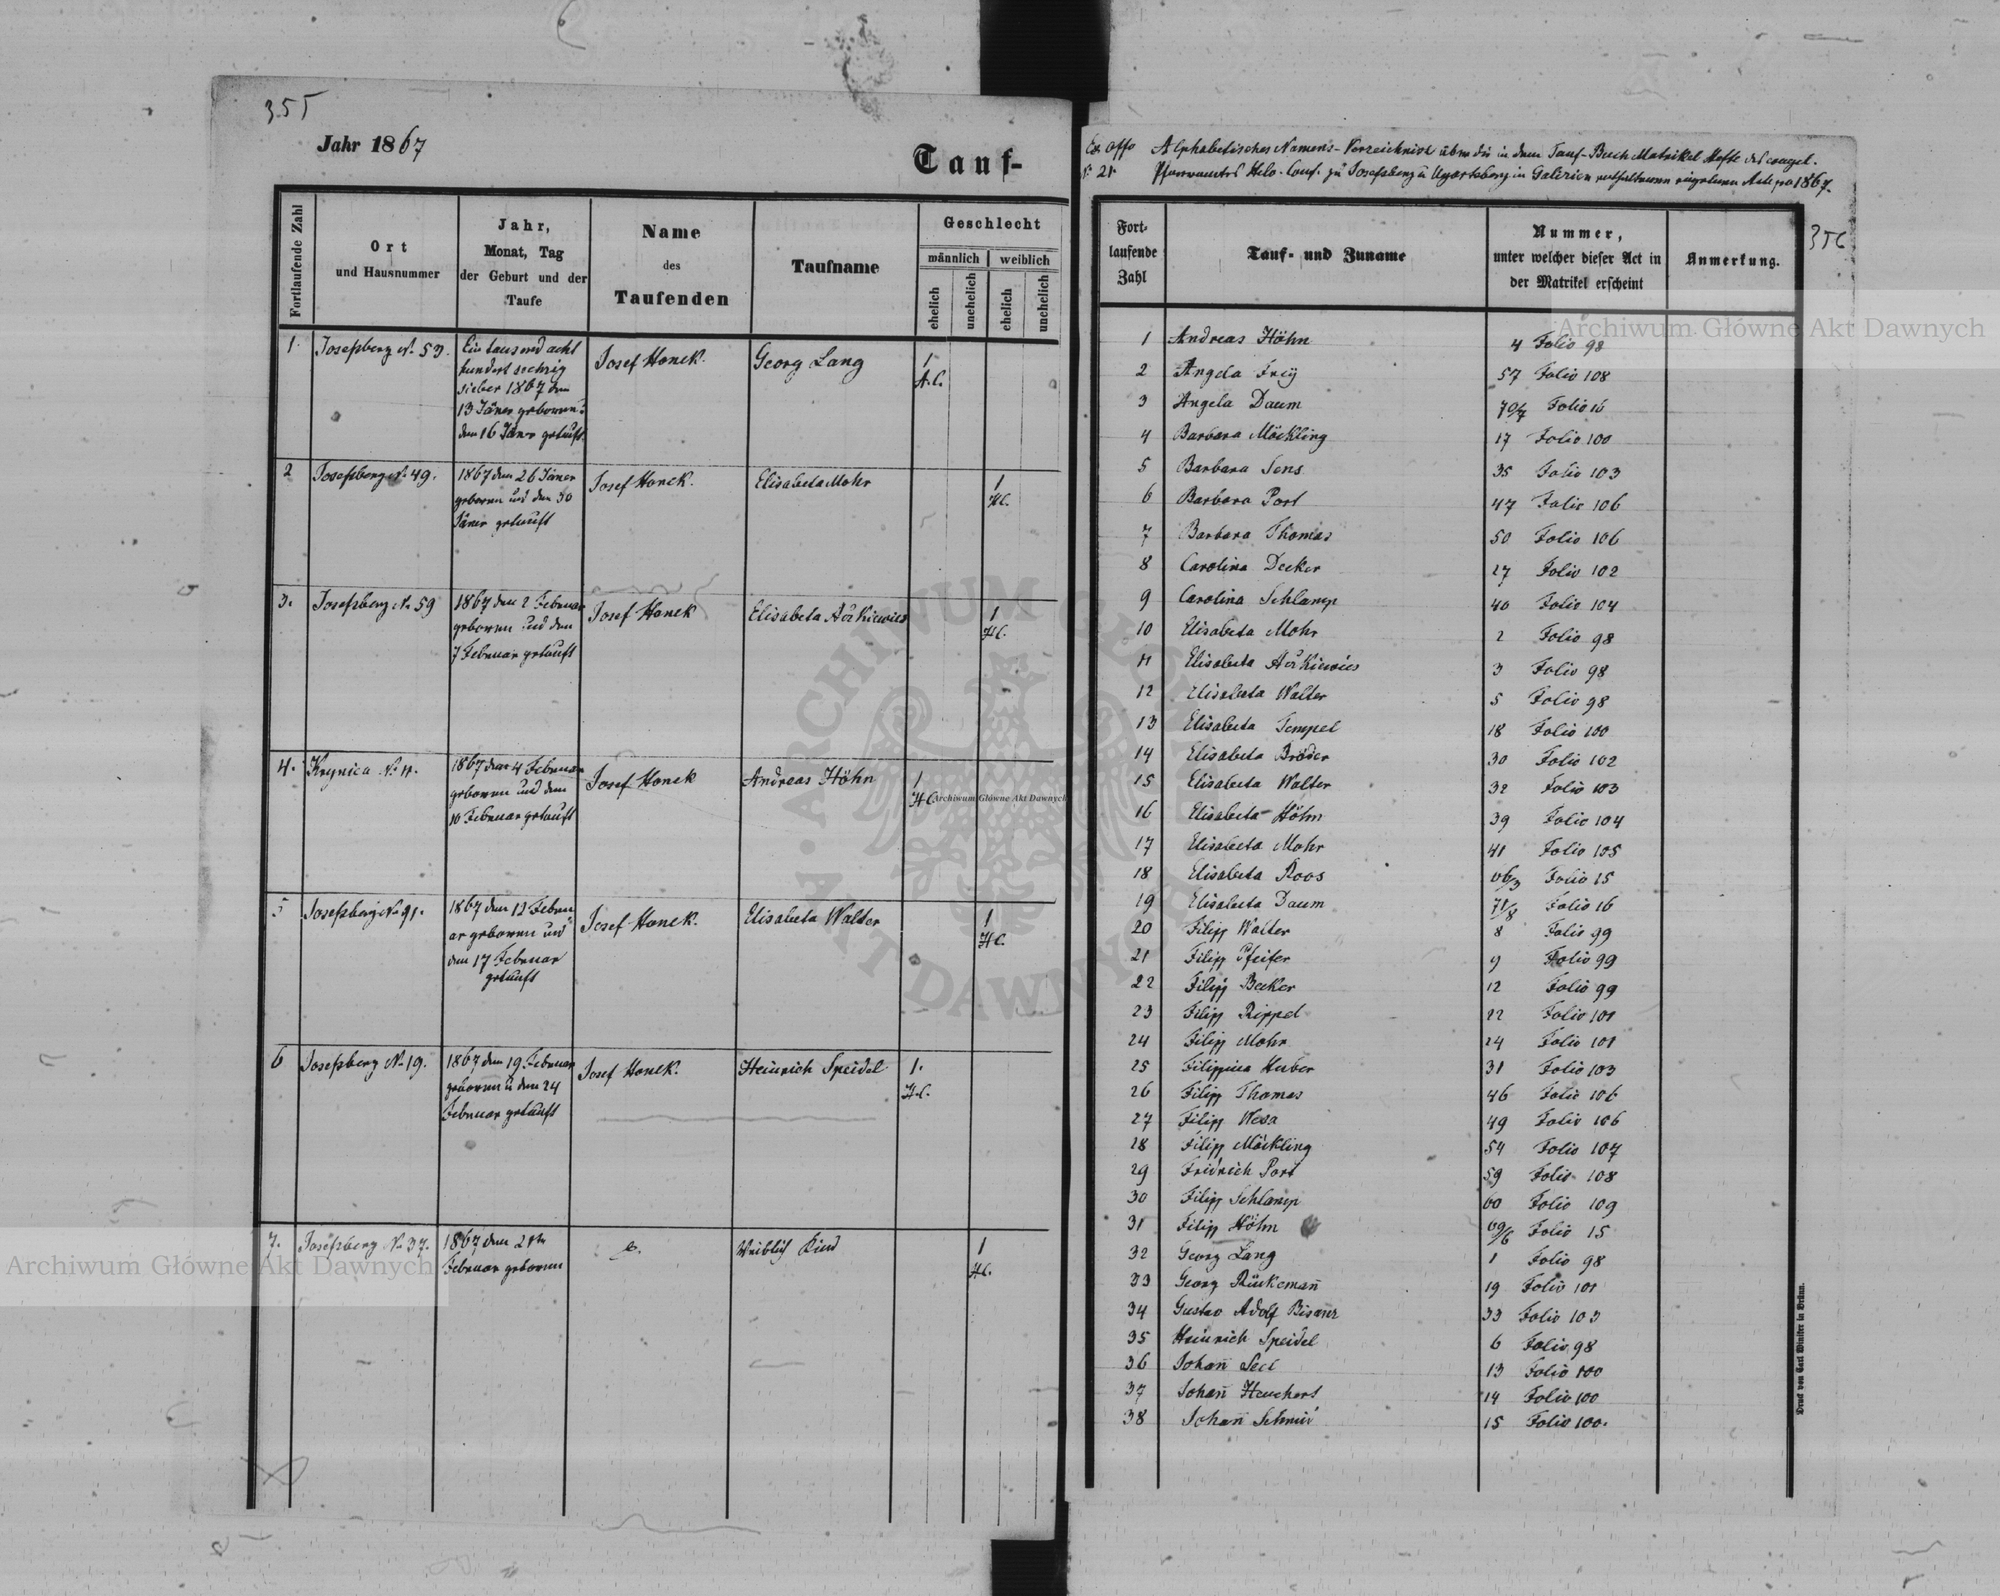 355
Jahr 1867
Tauf-
Fortlaufende Zahl
Ort
und Hausnummer
Jahr,
Monat, Tag
der Geburt und der
Taufe
Name
des
Taufenden
Taufname
Geschlecht
männlich weiblich
ehelich unehelich ehelich unehelich
1. Josefsberg N. 53. Ein tausend acht Josef Honek. Georg Lang 1
hundert sechzig A.C.
sieben 1867 den
13 Jäner geboren
den 16 Jäner getauft.
2 Josefsberg N. 49. 1867 den 26 Jäner Josef Honek. Elisabeta Mohr 1
geboren und den 30 H.C.
Jäner getauft
3. Josefsberg N. 59 1867 den 2 Februar Josef Honek 1
geboren und den H.C.
7 Februar getauft
4. Krynica N. 11. 1867 den 4 Februar Josef Honek Andreas Höhn 1
geboren und den H.C.
10 Februar getauft
5 Josefsberg N. 91. 1867 den 12 Febru Josef Honek. Elisabeta Walter 1
ar geboren und H.C.
den 17 Februar
getauft
6 Josefsberg N. 19. 1867 den 19 Februar Josef Honek. Heinrich Speidel 1.
geboren u den 24 H.C.
Februar getauft
7. Josefsberg N. 37. 1867 den 21te Weiblich Kind 1
Februar geboren H.C.
Ex offo Alphabetisches Namens-Verzeichniss über die in dem Tauf-Buch Matrikel Hefte des evangel.
N 21. Pfarramtes Helv. Conf. zu Josefsberg u Ugartsberg in Galizien enthaltenen einzelnen Acte pro 1867.
356
Fort-
laufende
Zahl
Tauf- und Zuname
Nummer,
unter welcher dieser Act in
der Matrikel erscheint
Anmerkung.
1 Andreas Höhn 4 Folio 98
2 Angela Frey 57 Folio 108
3 Angela Daum 70/7 Folio 16
4 Barbara Möckling 17 Folio 100
5 Barbara Sens 35 Folio 103
6 Barbara Port 47 Folio 106
7 Barbara Thomas 50 Folio 106
8 Carolina Decker 27 Folio 102
9 Carolina Schlamp 40 Folio 104
10 Elisabeta Mohr 2 Folio 98
11 Elisabeta 3 Folio 98
12 Elisabeta Walter 5 Folio 98
13 Elisabeta Tempel 18 Folio 100
14 Elisabeta Bröder 30 Folio 102
15 Elisabeta Walter 32 Folio 103
16 Elisabeta Höhn 39 Folio 104
17 Elisabeta Mohr 41 Folio 105
18 Elisabeta Roos 66/3 Folio 15
19 Elisabeta Daum 71/8 Folio 16
20 Filipp Walter 8 Folio 99
21 Filipp Pfeifer 9 Folio 99
22 Filipp Becker 12 Folio 99
23 Filipp Rippel 22 Folio 101
24 Filipp Mohr 24 Folio 101
25 Filippina Huber 31 Folio 103
26 Filipp Thomas 46 Folio 106
27 Filipp Wesa 49 Folio 106
28 Filipp Möckling 54 Folio 107
29 Fridrich Port 59 Folio 108
30 Filipp Schlamp 60 Folio 109
31 Filipp Höhn 69/6 Folio 15
32 Georg Lang 1 Folio 98
33 Georg Rückemañ 19 Folio 101
34 Gustav Adolf Bisanz 33 Folio 103
35 Heinrich Speidel 6 Folio 98
36 Johañ Seel 13 Folio 100
37 Johañ Heuchert 14 Folio 100
38 Johañ Schmid 15 Folio 100.
Druck von Carl Winiker in Brünn.
Archiwum Główne Akt Dawnych
Archiwum Główne Akt Dawnych
Archiwum Główne Akt Dawnych
ARCHIWUM GŁÓWNE AKT DAWNYCH